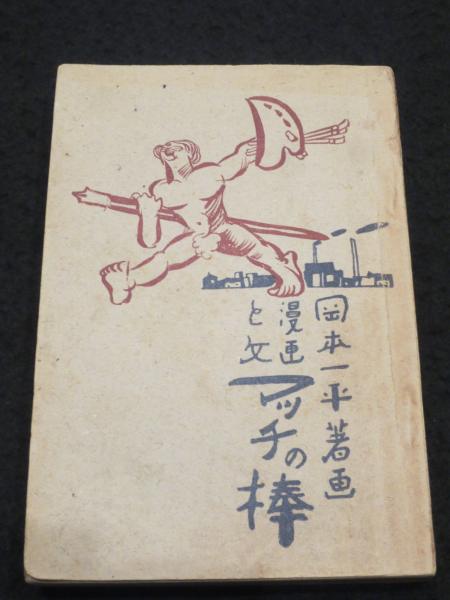 岡本一平著画
漫画
と文
マッチの棒